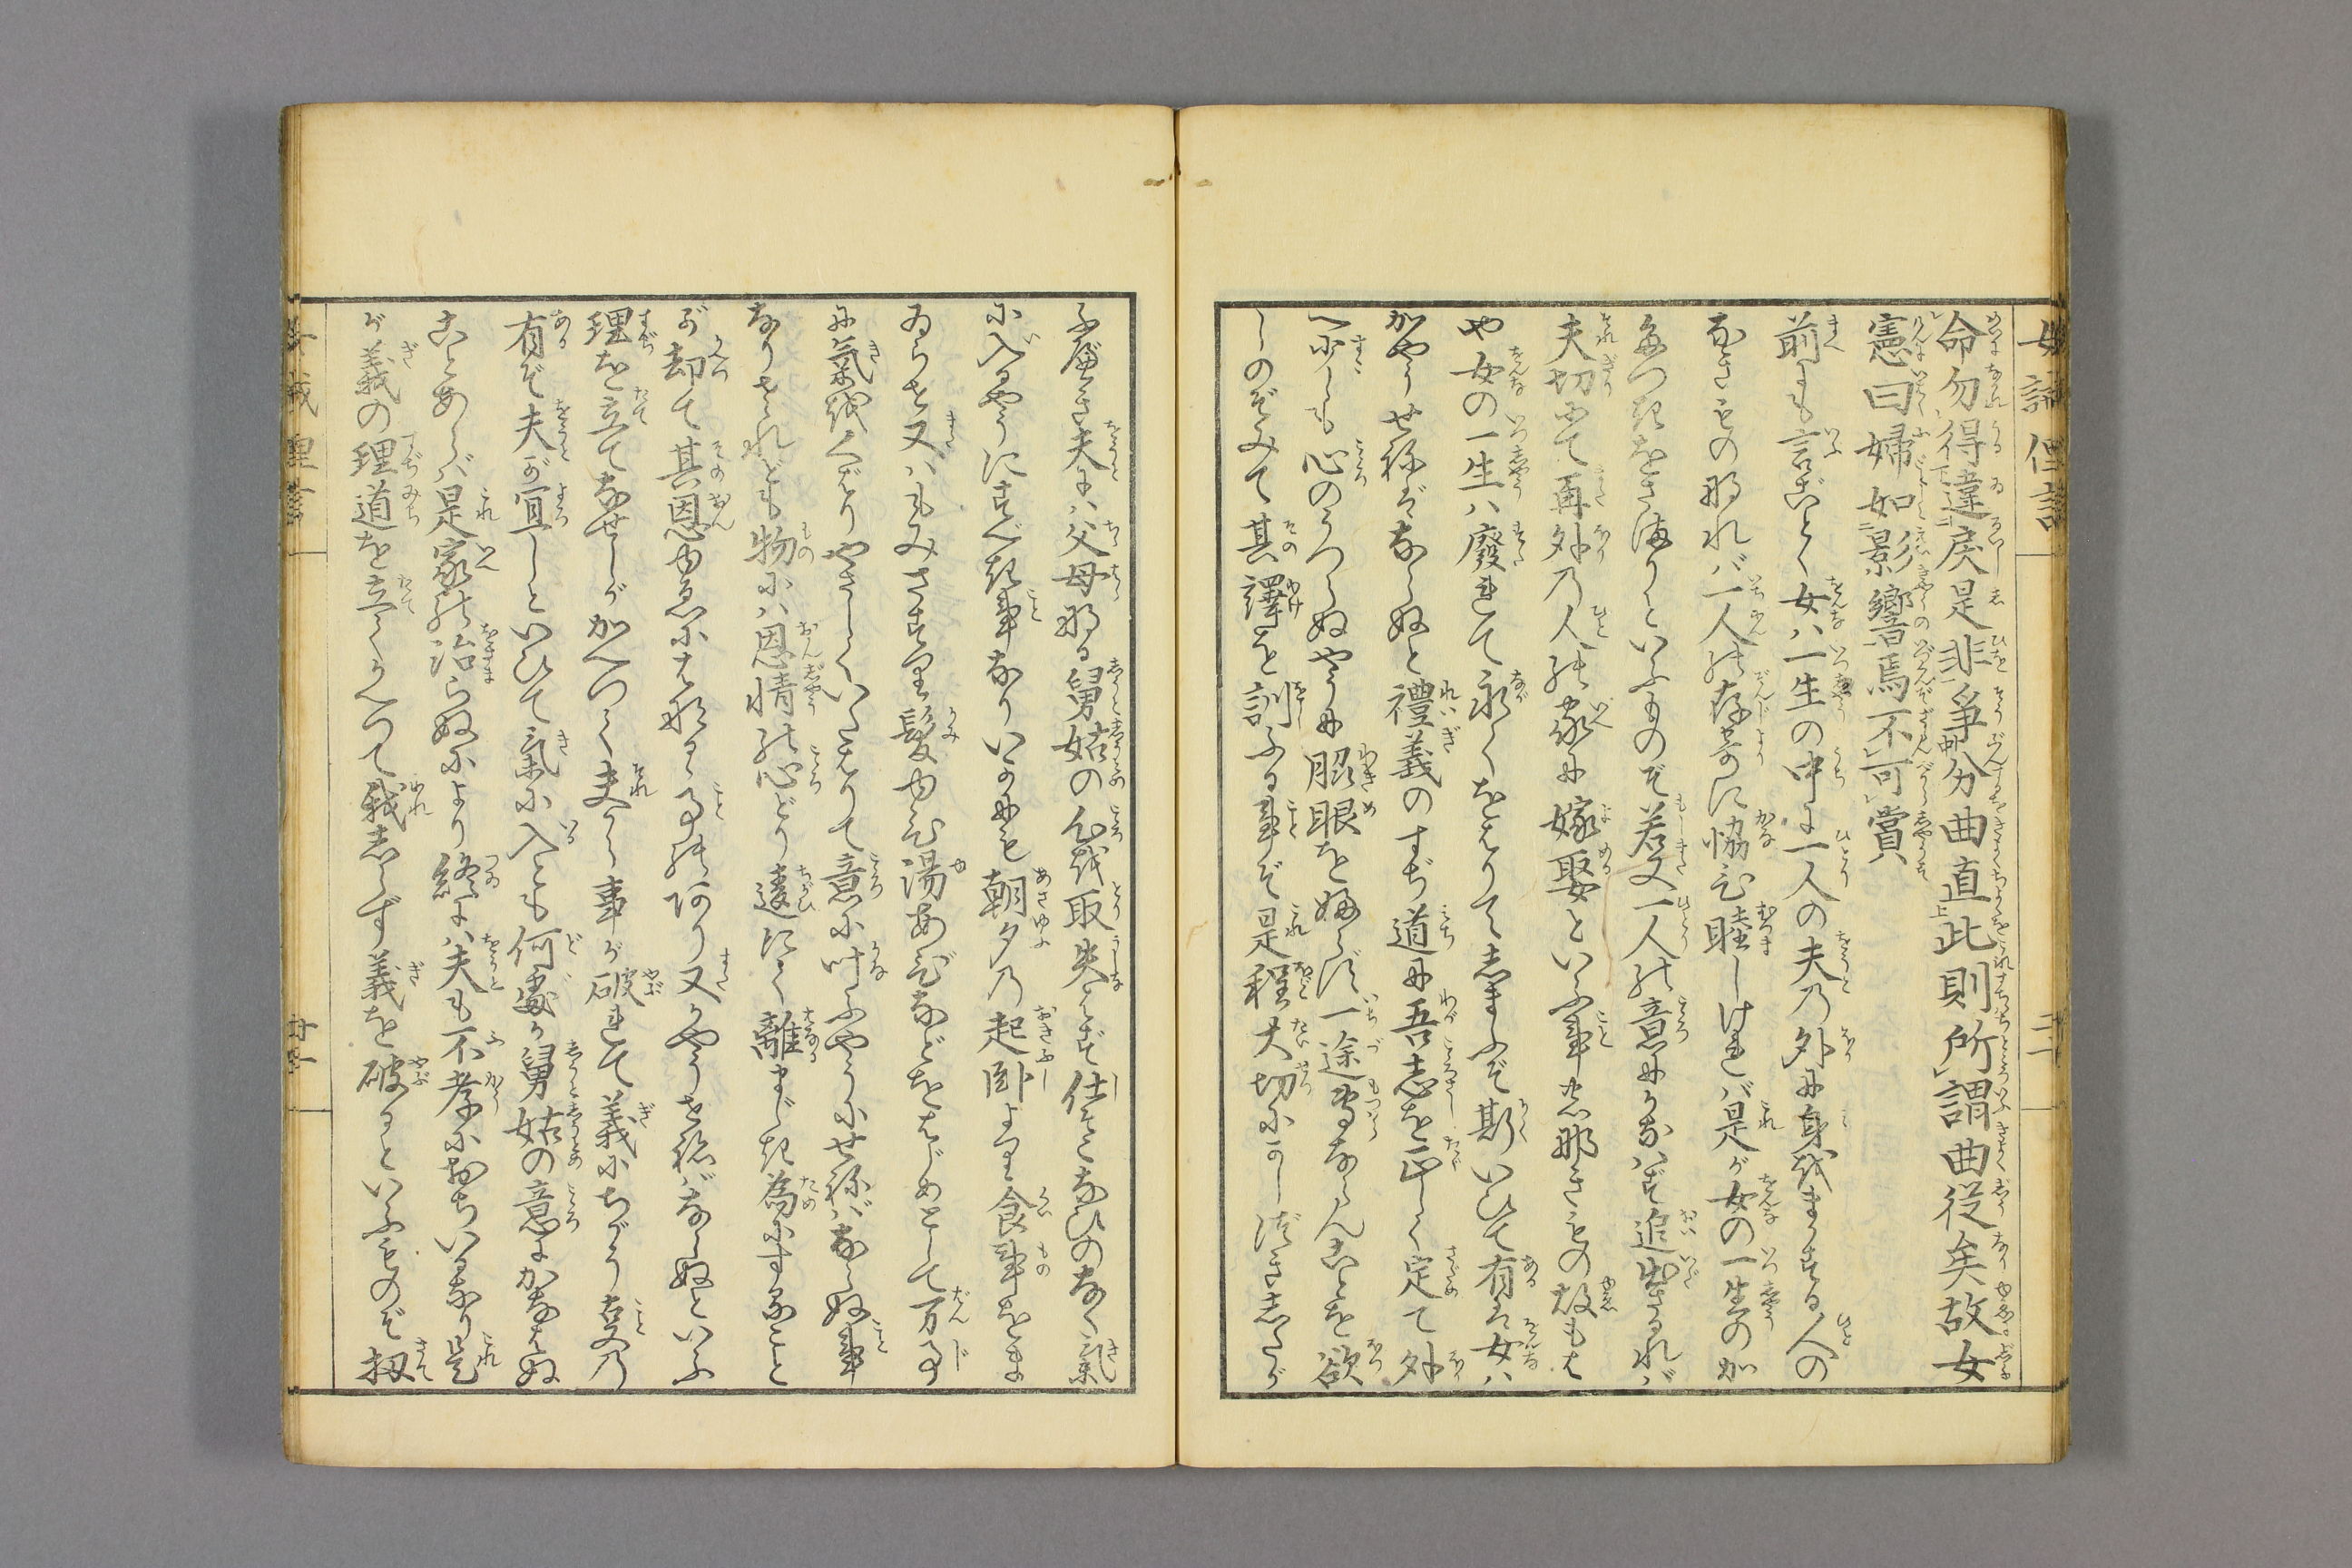 命勿得違戻是非争分曲直此則所謂曲従矣故女
憲曰婦如影響焉不可賞
前にも言ごとく女ハ一生の中に一人の夫乃外に身をまかする人の
なきもの那れバ一人の存寄に協ひ睦しけれバ是が女の一生のか
たつきをさ満りといふものぞ若又一人の意にかなハず追出さるれバ
夫切にて再外乃人の家に嫁娶といふ事も那きもの故もは
や女の一生ハ廃れて永くをはりてしまふぞ斯いひて有は女ハ
かやうせねばならぬと礼義のすぢ道に吾志を正しく定て外
へ少しも心のうつらぬやうに脇眼をふらず一途専ならんことを欲
しのぞみて其譯を訓ふる事ぞ是程大切にかしづきしたが
ふ屋き夫にハ父母那る舅姑の心を取失はず仕そこなひのなく氣
に入るやうにすべき事なりいかにも朝夕乃起卧より食事をま
ゐらせ又ハもみさすり髪ゆひ湯あびなどをはじめとして万事
に氣をくばりやさしくいたはりて意に叶ふやうにせねバならぬ事
なりされども物にハ恩情の心どり違にて離まじき為にすること
が却て其恩ゆゑにはなるゝ事の阿り又かやうせねバならぬといふ
理を立てなせしがかへつて夫から事が破れて義にちがう事乃
有ぞ夫が宜しといひて氣に入とも何處か舅姑の意にかなはぬ
ことあらバ是家の治らぬにより終にハ夫も不孝におちいるなり是
が義の理道を立てかへつて我しらず義を破るといふものぞ扨